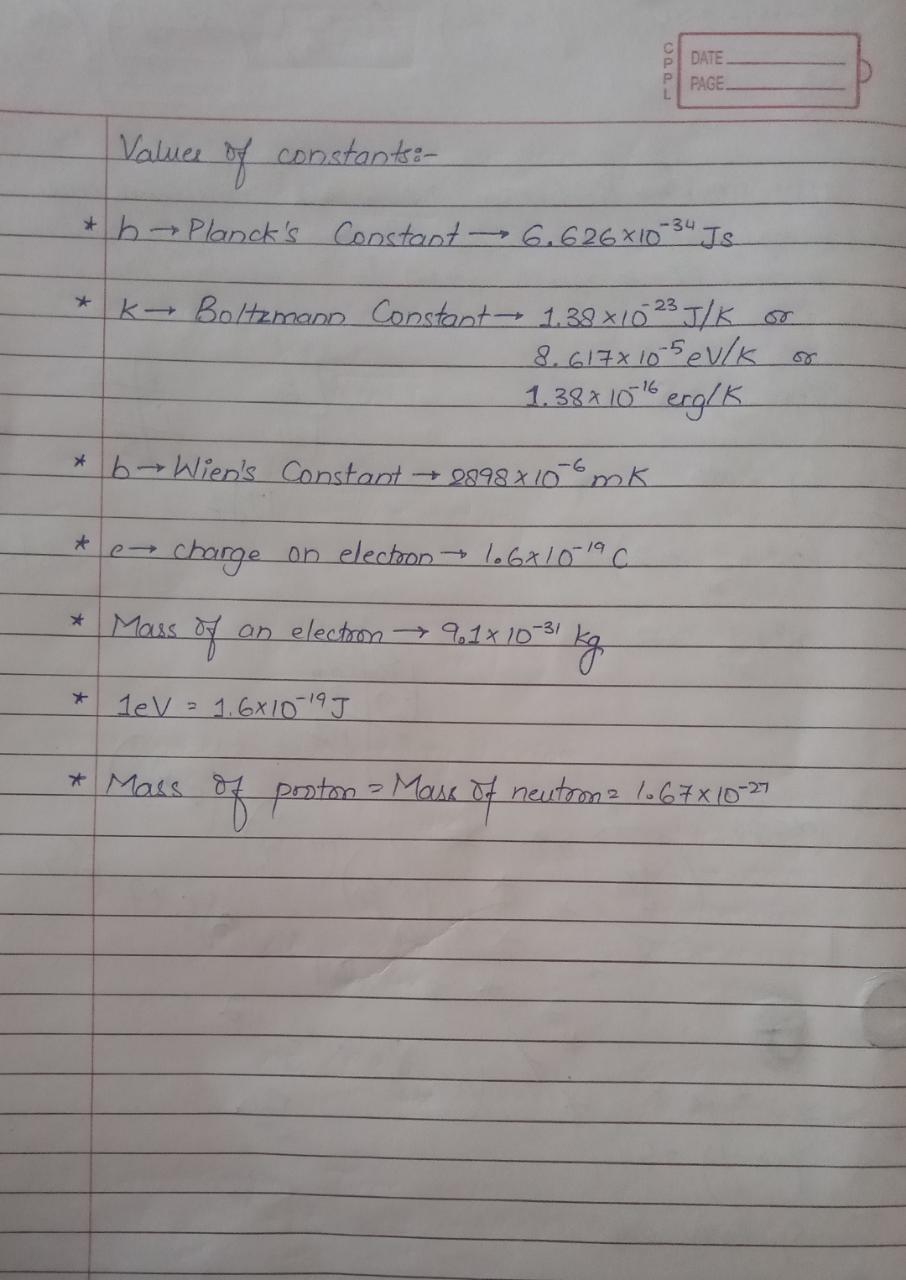 CPPL
DATE
PAGE
Values of constants:-
* h → Planck's Constant → 6.626×10⁻³⁴ Js
* k → Boltzmann Constant → 1.38×10⁻²³ J/K or
8.617×10⁻⁵ eV/K or
1.38×10⁻¹⁶ erg/K
* b → Wien's Constant → 2898×10⁻⁶ mK
* e → charge on electron → 1.6×10⁻¹⁹ C
* Mass of an electron → 9.1×10⁻³¹ kg
* 1eV = 1.6×10⁻¹⁹ J
* Mass of proton = Mass of neutron = 1.67×10⁻²⁷